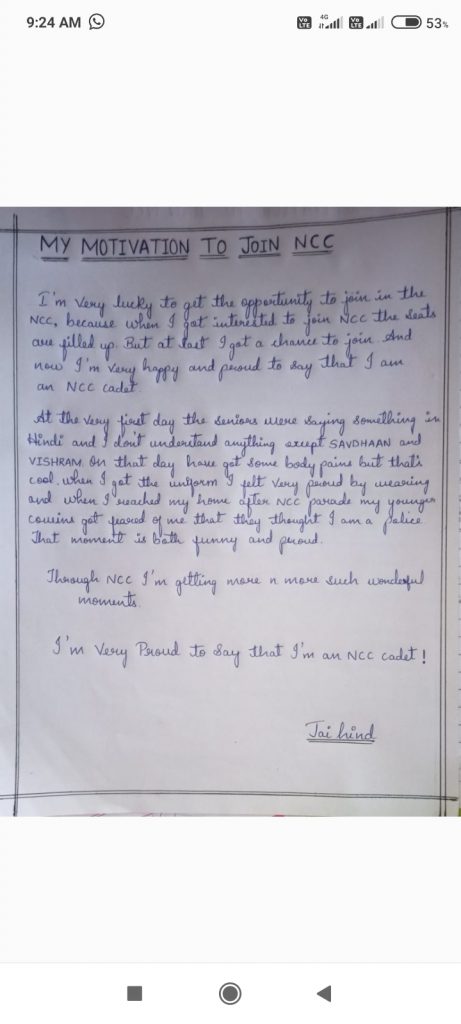 9:24 AM
Vo LTE 4G Vo LTE 53%
MY MOTIVATION TO JOIN NCC
I'm very lucky to get the opportunity to join in the
NCC, because when I got interested to join NCC the seats
are filled up. But at last I got a chance to join. And
now I'm very happy and proud to say that I am
an NCC cadet.
At the very first day the seniors were saying something in
Hindi and I don't understand anything except SAVDHAAN and
VISHRAM. On that day have got some body pains but that's
cool. when I got the uniform I felt very proud by wearing
and when I reached my home after NCC parade my younger
cousins got feared of me that they thought I am a police
That moment is both funny and proud.
Through NCC I'm getting more n more such wonderful
moments.
I'm Very Proud to Say that I'm an NCC cadet!
Jai hind